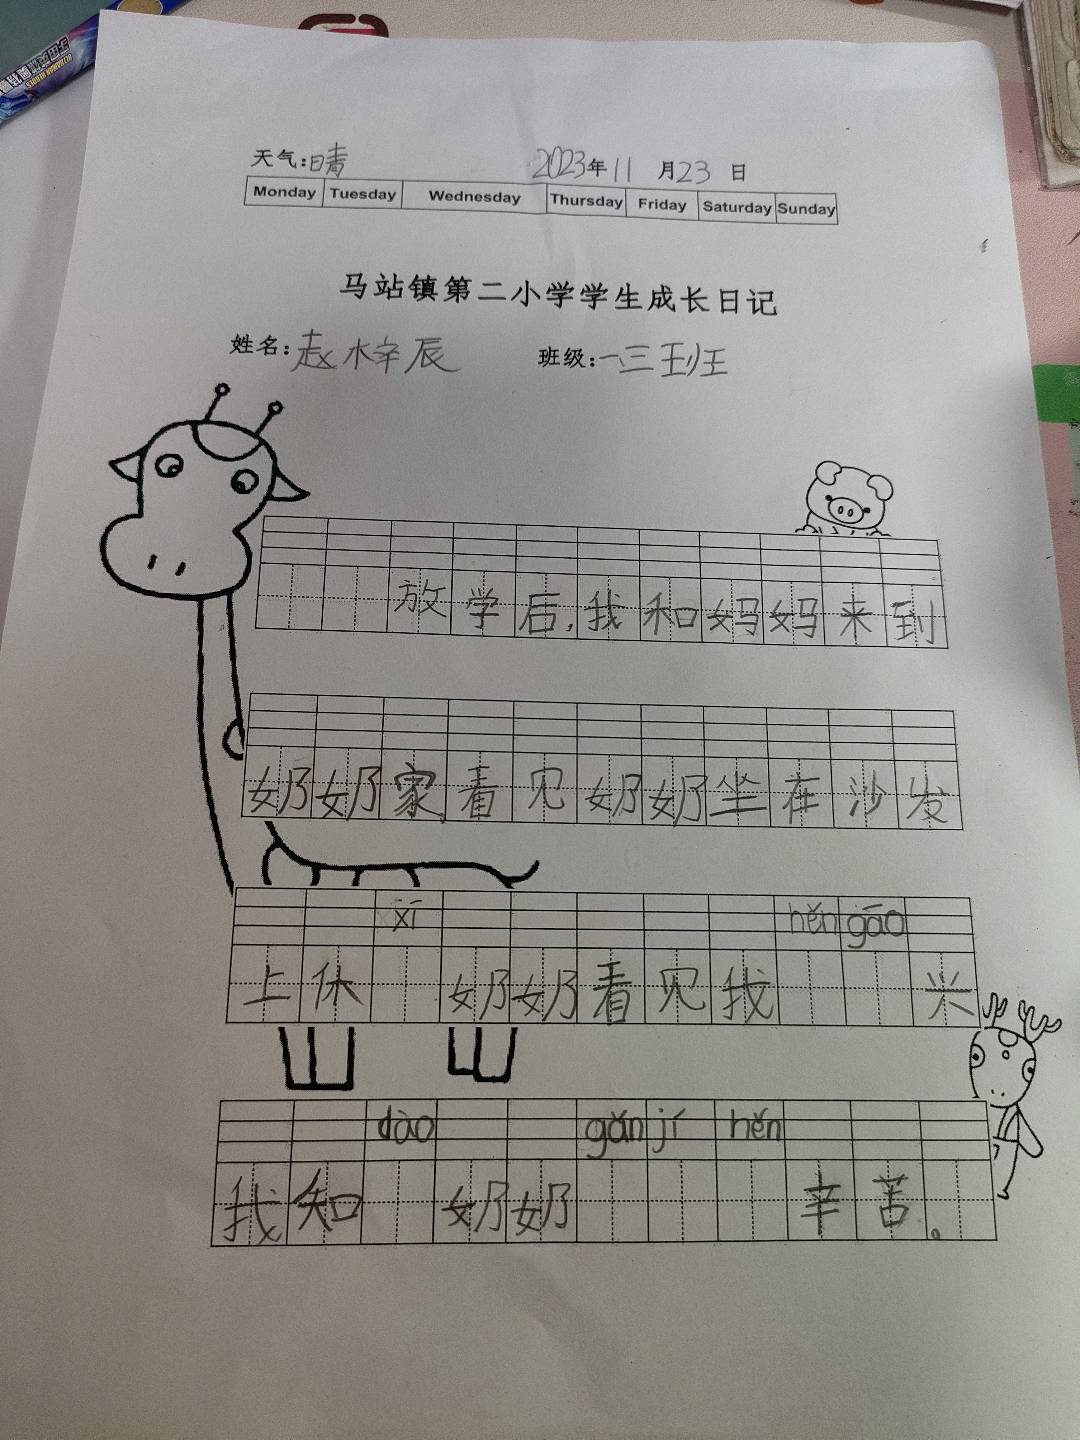 天气:晴 2023年11月23日
Monday Tuesday Wednesday Thursday Friday Saturday Sunday
马站镇第二小学学生成长日记
姓名:赵梓辰 班级:一三班
放学后,我和妈妈来到
奶奶家,看见奶奶坐在沙发
上休xī奶奶看见我hěn gāo兴
我知dào奶奶gǎn jí hěn辛苦。